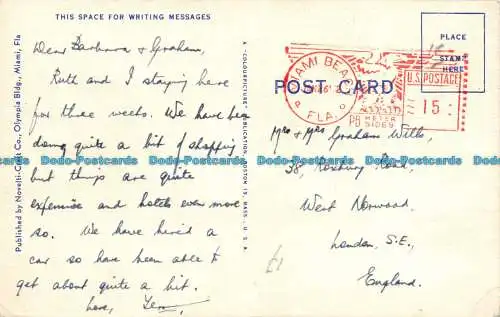 THIS SPACE FOR WRITING MESSAGES
Dear Barbara & Graham,
Ruth and I staying here
for three weeks. We have been
doing quite a bit of shopping
but things are quite
expensive and hotels even more
so. We have hired a
car so have been able to
get about quite a bit.
Love,
Published by Novelti-Craft Co., Olympia Bldg., Miami, Fla
A "COLOURPICTURE" PUBLICATION, BOSTON 15, MASS., U.S.A.
PLACE
STAMP
HERE
POST CARD
MIAMI BEACH
FLA.
U.S. POSTAGE
15
PB METER
Mr & Mrs Graham Wills,
38, Roxbury Road,
West Norwood,
London, S.E.,
England.
£1
Dodo-Postcards Dodo-Postcards Dodo-Postcards Dodo-Postcards